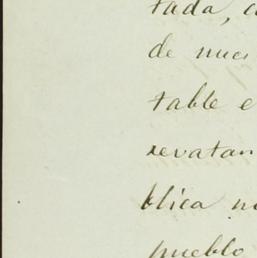 tada, c
de nues
table e
revatan
blica n
pueblo